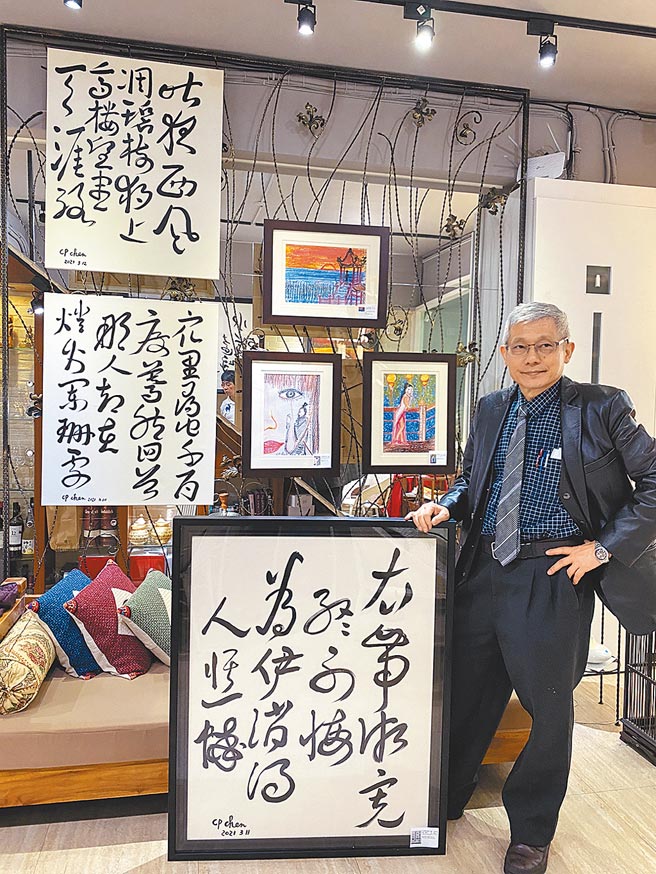 昨夜西風
凋碧樹獨上
高樓望盡
天涯路
CP chen
2021 3.12
众里尋他千百
度驀然回首
那人却在
燈火闌珊處
CP chen
衣帶漸寬
終不悔
為伊消得
人憔悴
CP chen
2021 3.11